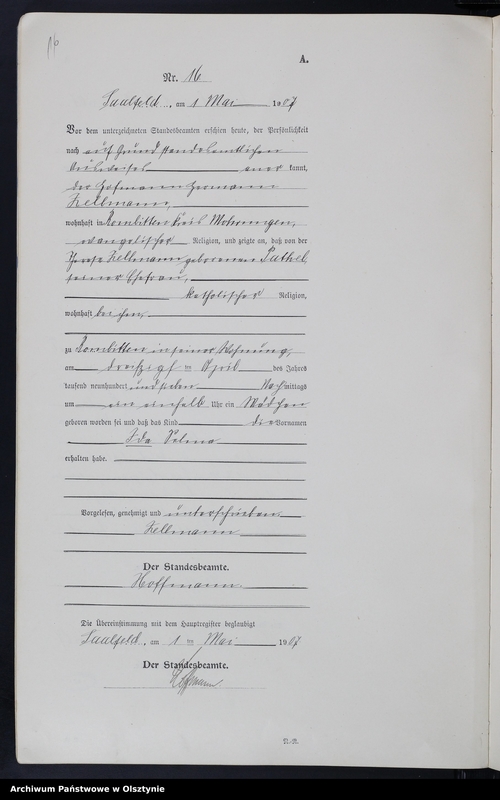 16
A.
Nr. 16
Saalfeld, am 1 Mai 1907
Vor dem unterzeichneten Standesbeamten erschien heute, der Persönlichkeit
nach auf Grund standesamtlichen
Ausweises aner kannt,
der Hofmann Hermann
Zellmann,
wohnhaft in Kombitten Kreis Mohrungen,
evangelischer Religion, und zeigte an, daß von der
Zellmann geborenen
seiner Ehefrau,
katholischer Religion,
wohnhaft bei ihm,
zu Kombitten in seiner Wohnung,
am dreißigsten April des Jahres
tausend neunhundert und sieben Nachmittags
um ein einhalb Uhr ein Mädchen
geboren worden sei und daß das Kind die Vornamen
Ida Selma
erhalten habe.
Vorgelesen, genehmigt und unterschrieben
Zellmann
Der Standesbeamte.
Hoffmann
Die Übereinstimmung mit dem Hauptregister beglaubigt
Saalfeld, am 1 ten Mai 1907
Der Standesbeamte.
Hoffmann.
Archiwum Państwowe w Olsztynie